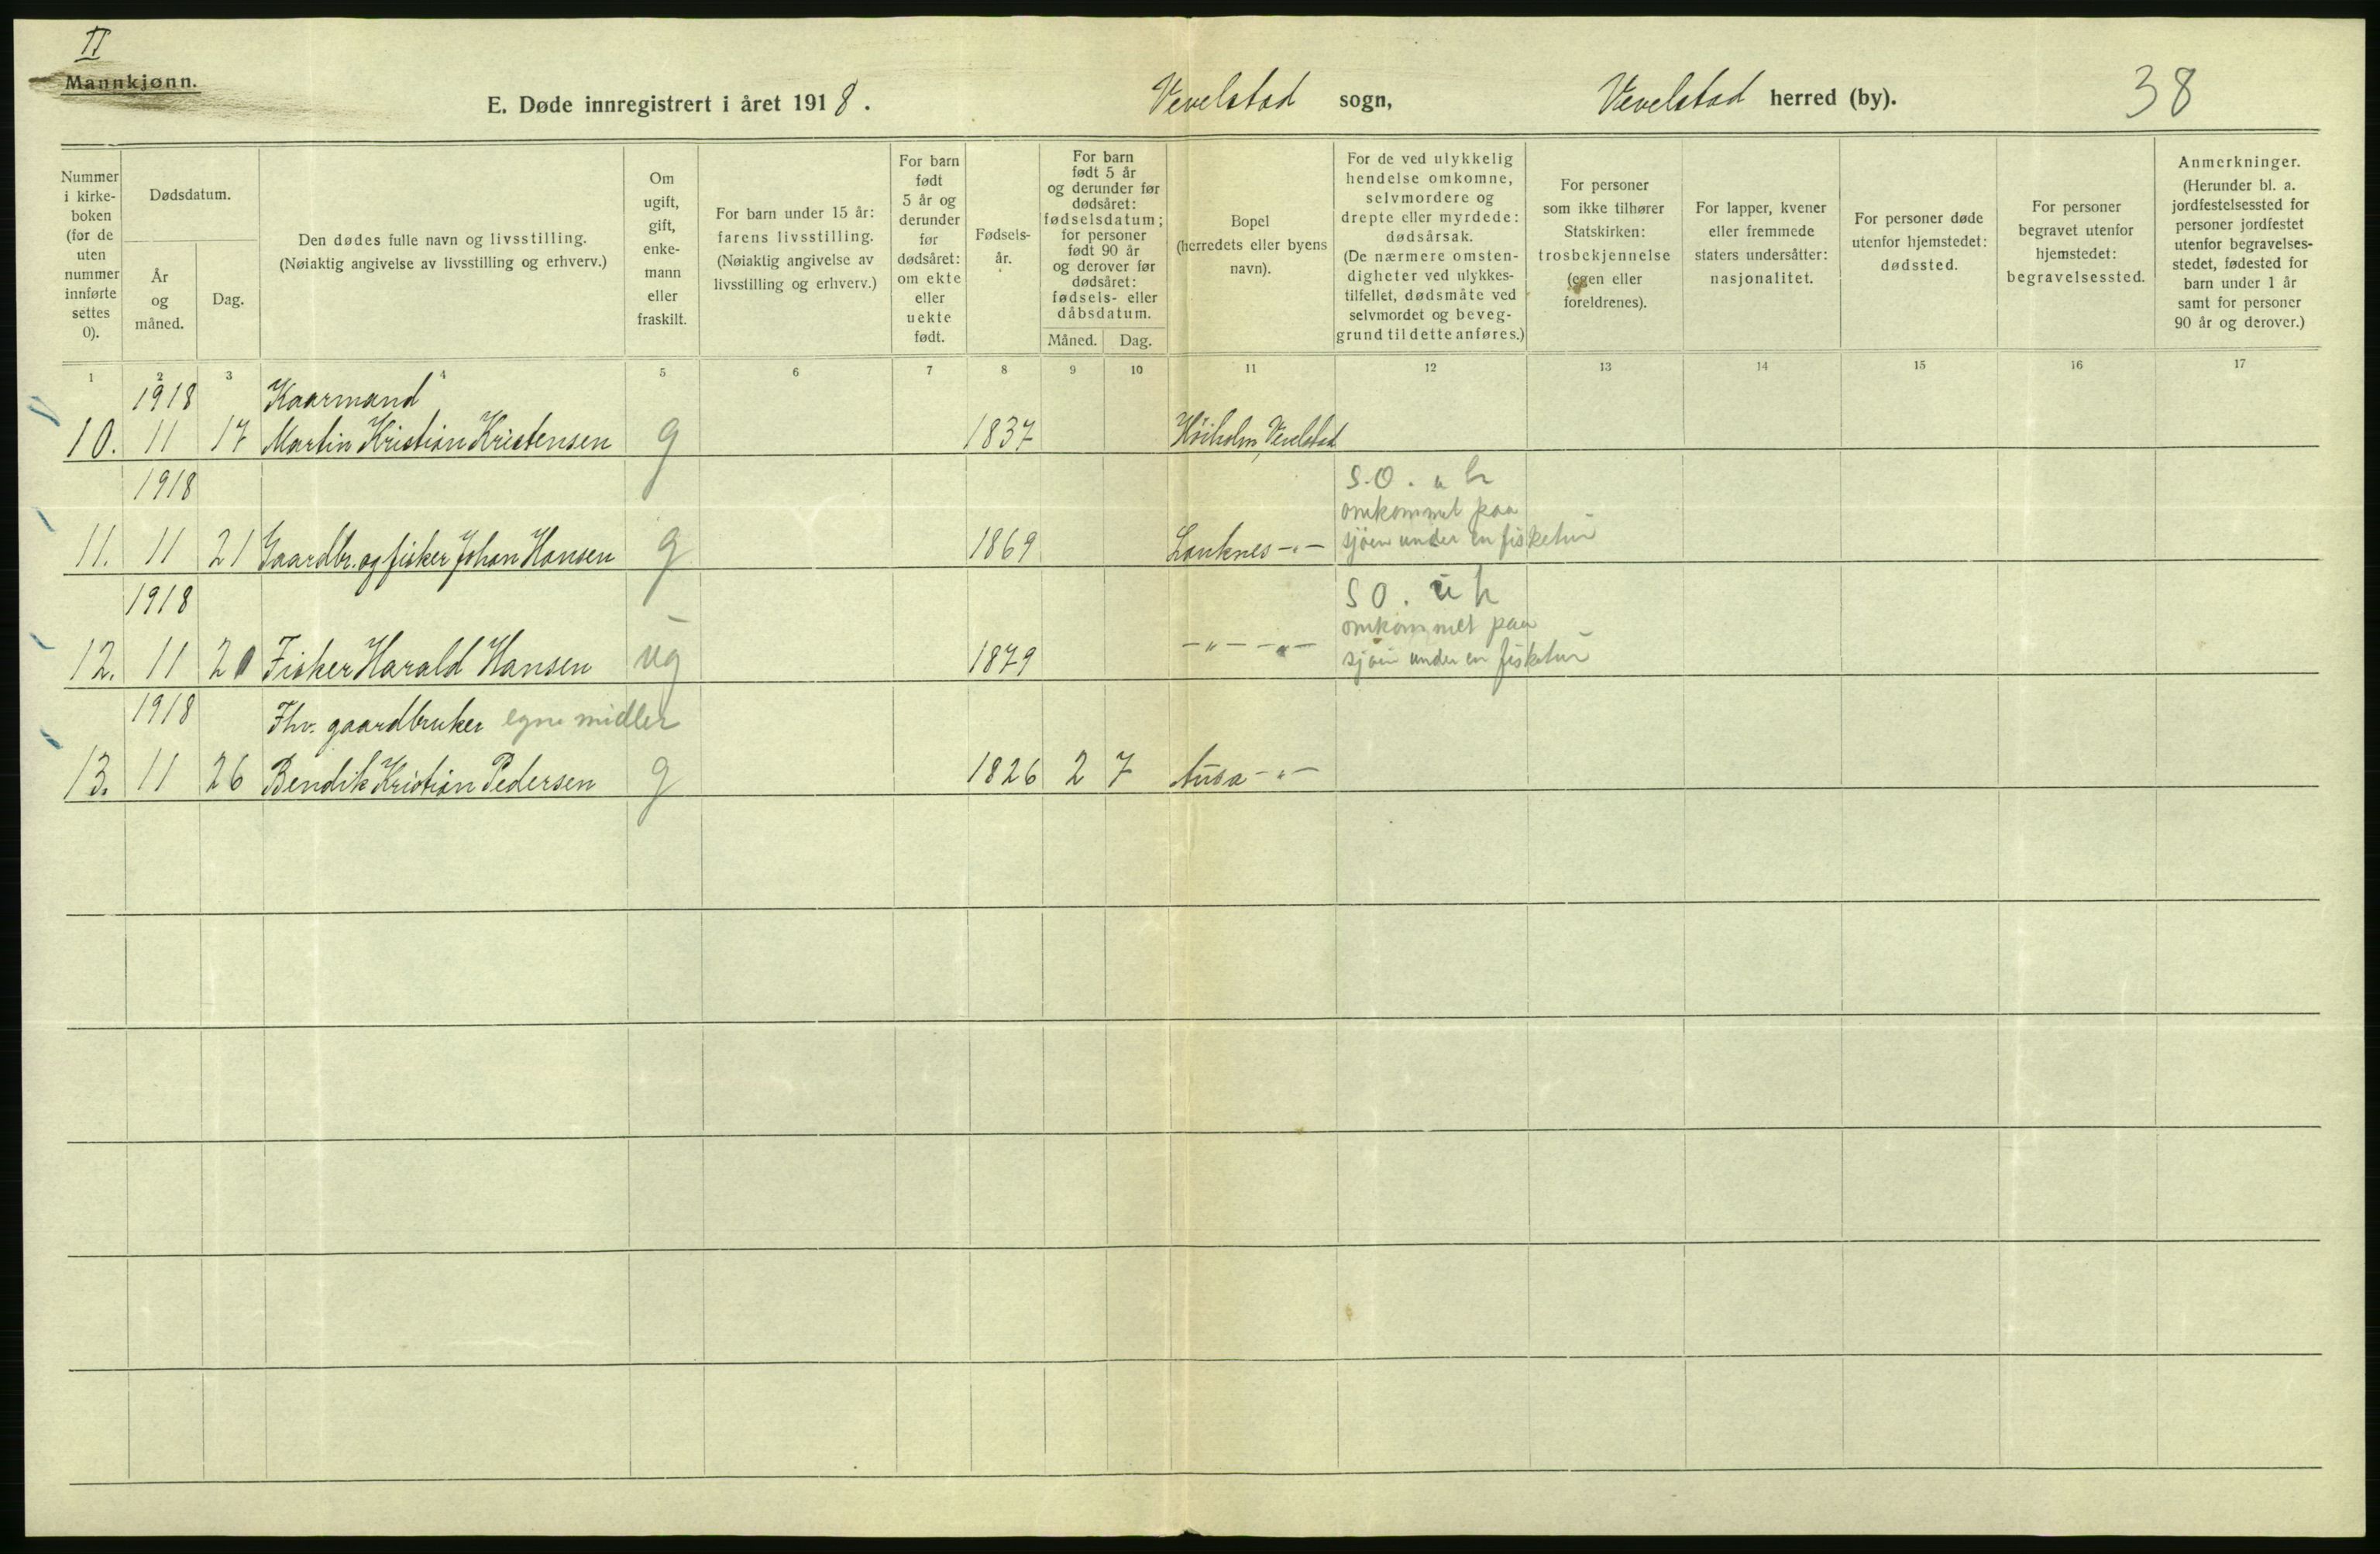 II
Mannkjønn.
E. Døde innregistrert i året 1918. Vevelstad sogn, Vevelstad herred (by). 38
Nummer i kirke-boken (for de uten nummer innførte settes 0).
Dødsdatum.
År og måned.
Dag.
Den dødes fulle navn og livsstilling.
(Nøiaktig angivelse av livsstilling og erhverv.)
Om ugift, gift, enke-mann eller fraskilt.
For barn under 15 år: farens livsstilling. (Nøiaktig angivelse av livsstilling og erhverv.)
For barn født 5 år og derunder før dødsåret: om ekte eller uekte født.
Fødsels-år.
For barn født 5 år og derunder før dødsåret: fødselsdatum; for personer født 90 år og derover før dødsåret: fødsels- eller dåbsdatum.
Måned. Dag.
Bopel (herredets eller byens navn).
For de ved ulykkelig hendelse omkomne, selvmordere og drepte eller myrdede: dødsårsak. (De nærmere omsten-digheter ved ulykkes-tilfellet, dødsmåte ved selvmordet og beveg-grund til dette anføres.)
For personer som ikke tilhører Statskirken: trosbekjennelse (egen eller foreldrenes).
For lapper, kvener eller fremmede staters undersåtter: nasjonalitet.
For personer døde utenfor hjemstedet: dødssted.
For personer begravet utenfor hjemstedet: begravelsessted.
Anmerkninger. (Herunder bl. a. jordfestelsessted for personer jordfestet utenfor begravelses-stedet, fødested for barn under 1 år samt for personer 90 år og derover.)
1 2 3 4 5 6 7 8 9 10 11 12 13 14 15 16 17
1918 Kaarmand
10. 11 17 Martin Kristian Kristensen g 1837 Høiholm, Vevelstad
1918 S.O.
omkommet paa
11. 11 21 Gaardbr. og fisker Johan Hansen g 1869 Lauknes -"- sjøen under en fisketur
1918 S O.
omkommet paa
12. 11 21 Fisker Harald Hansen ug 1879 -"- -"- sjøen under en fisketur
1918 Fhv. gaardbruker egne midler
13. 11 26 Bendik Kristian Pedersen g 1826 2 7 Ausa -"-